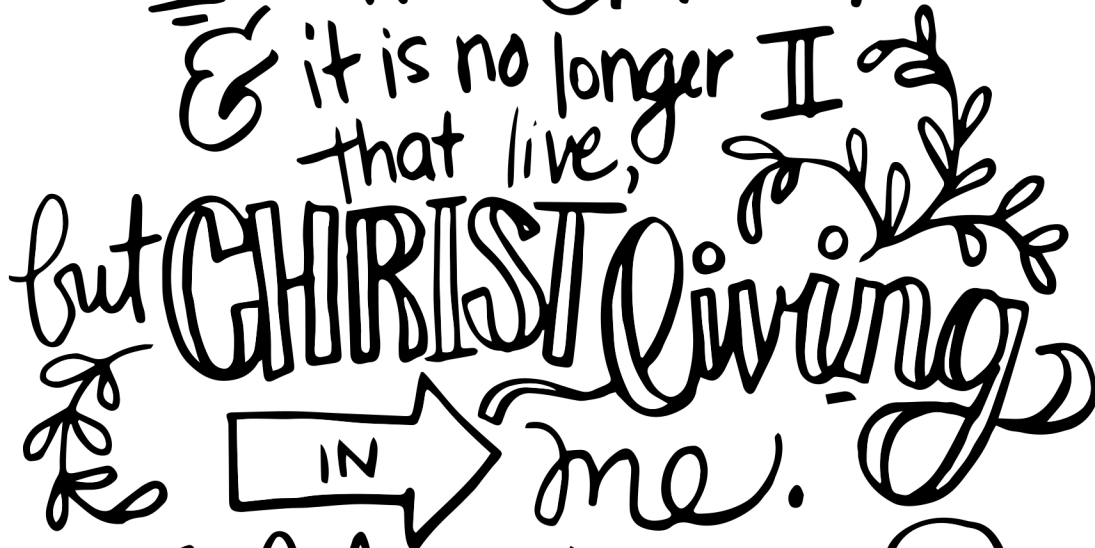 & it is no longer I
that live,
but CHRIST living
IN me.